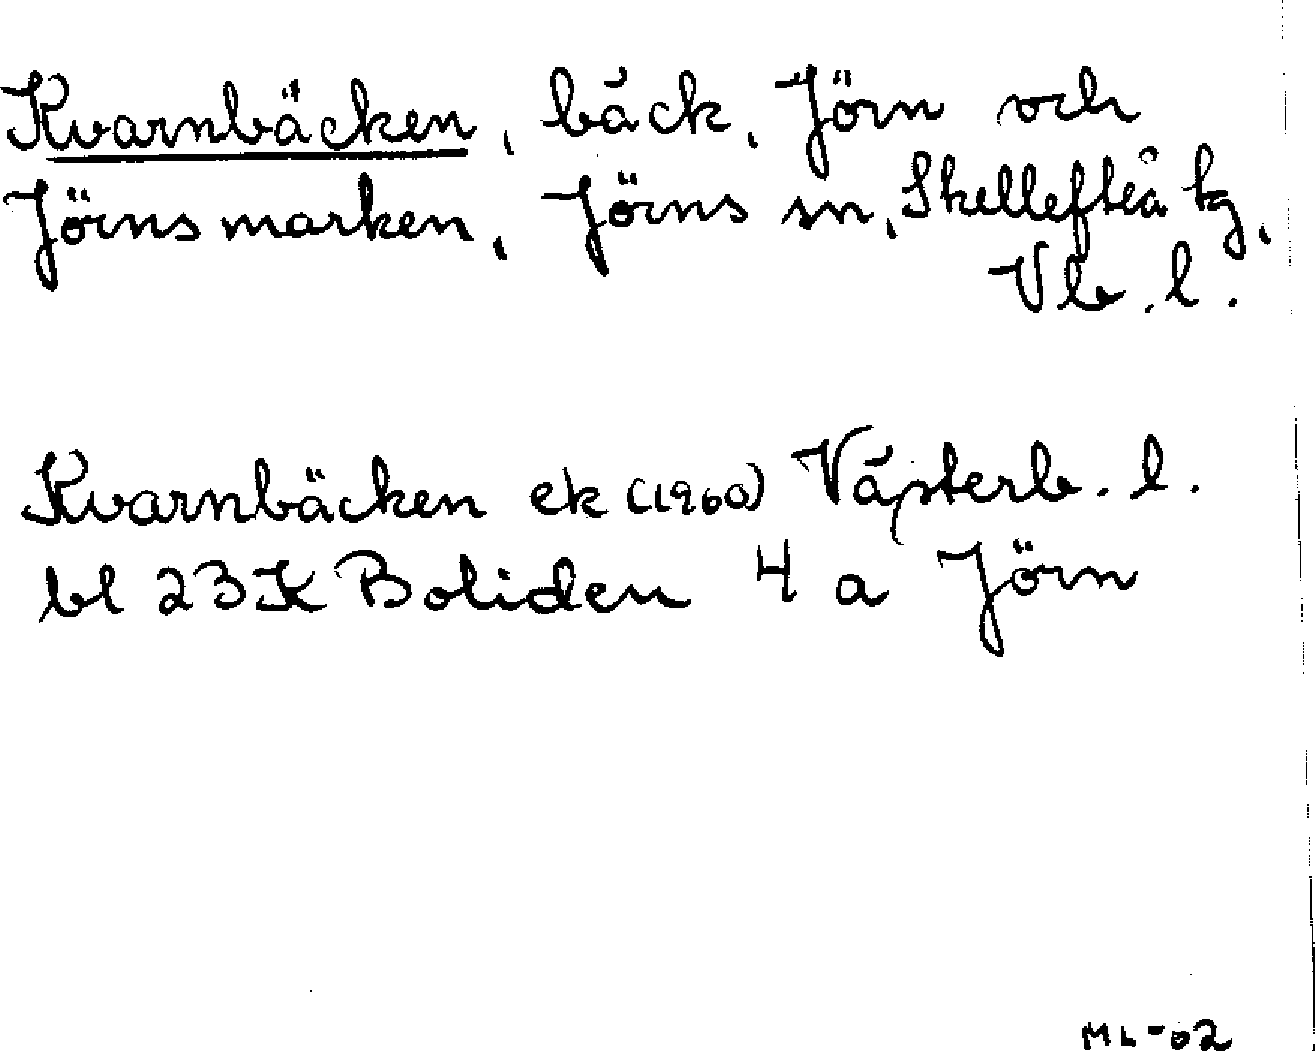 Kvarnbäcken, bäck, Jörn och
Jörnsmarken, Jörns sn, Skellefteå kg,
Vb. l.
Kvarnbäcken ek (1960) Västerb. l.
bl 23K Boliden 4 a Jörn
ML-02